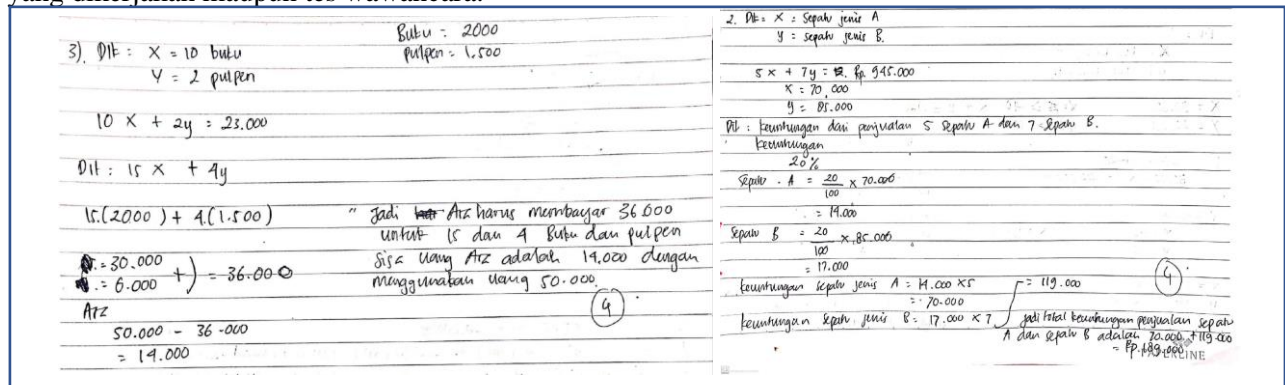 yang dikerjakan maupun tes wawancara.
3). Dik : X = 10 buku
Y = 2 pulpen
Buku : 2000
pulpen = 1.500
10 X + 2y = 23.000
Dit : 15 X + 4y
15.(2000) + 4.(1.500)
= 30.000
= 6.000 + ) = 36.000
Arz
50.000 - 36.000
= 14.000
" Jadi Arz harus membayar 36.000
untuk 15 dan 4 Buku dan pulpen
Sisa uang Arz adalah 14.000 dengan
menggunakan uang 50.000.
4
2. Dik = X : Sepatu jenis A
y = sepatu jenis B.
5 x + 7y = Rp. 945.000
x = 70.000
y = 85.000
Dit : keuntungan dari penjualan 5 sepatu A dan 7 sepatu B.
keuntungan
20%
Sepatu . A = 20/100 x 70.000
= 14.000
Sepatu B = 20/100 x 85.000
= 17.000
keuntungan sepatu jenis A = 14.000 x 5
= 70.000
keuntungan sepatu jenis B = 17.000 x 7
= 119.000
jadi total keuntungan penjualan sepatu
A dan sepatu B adalah 70.000 + 119.000
= Rp. 189.000
4